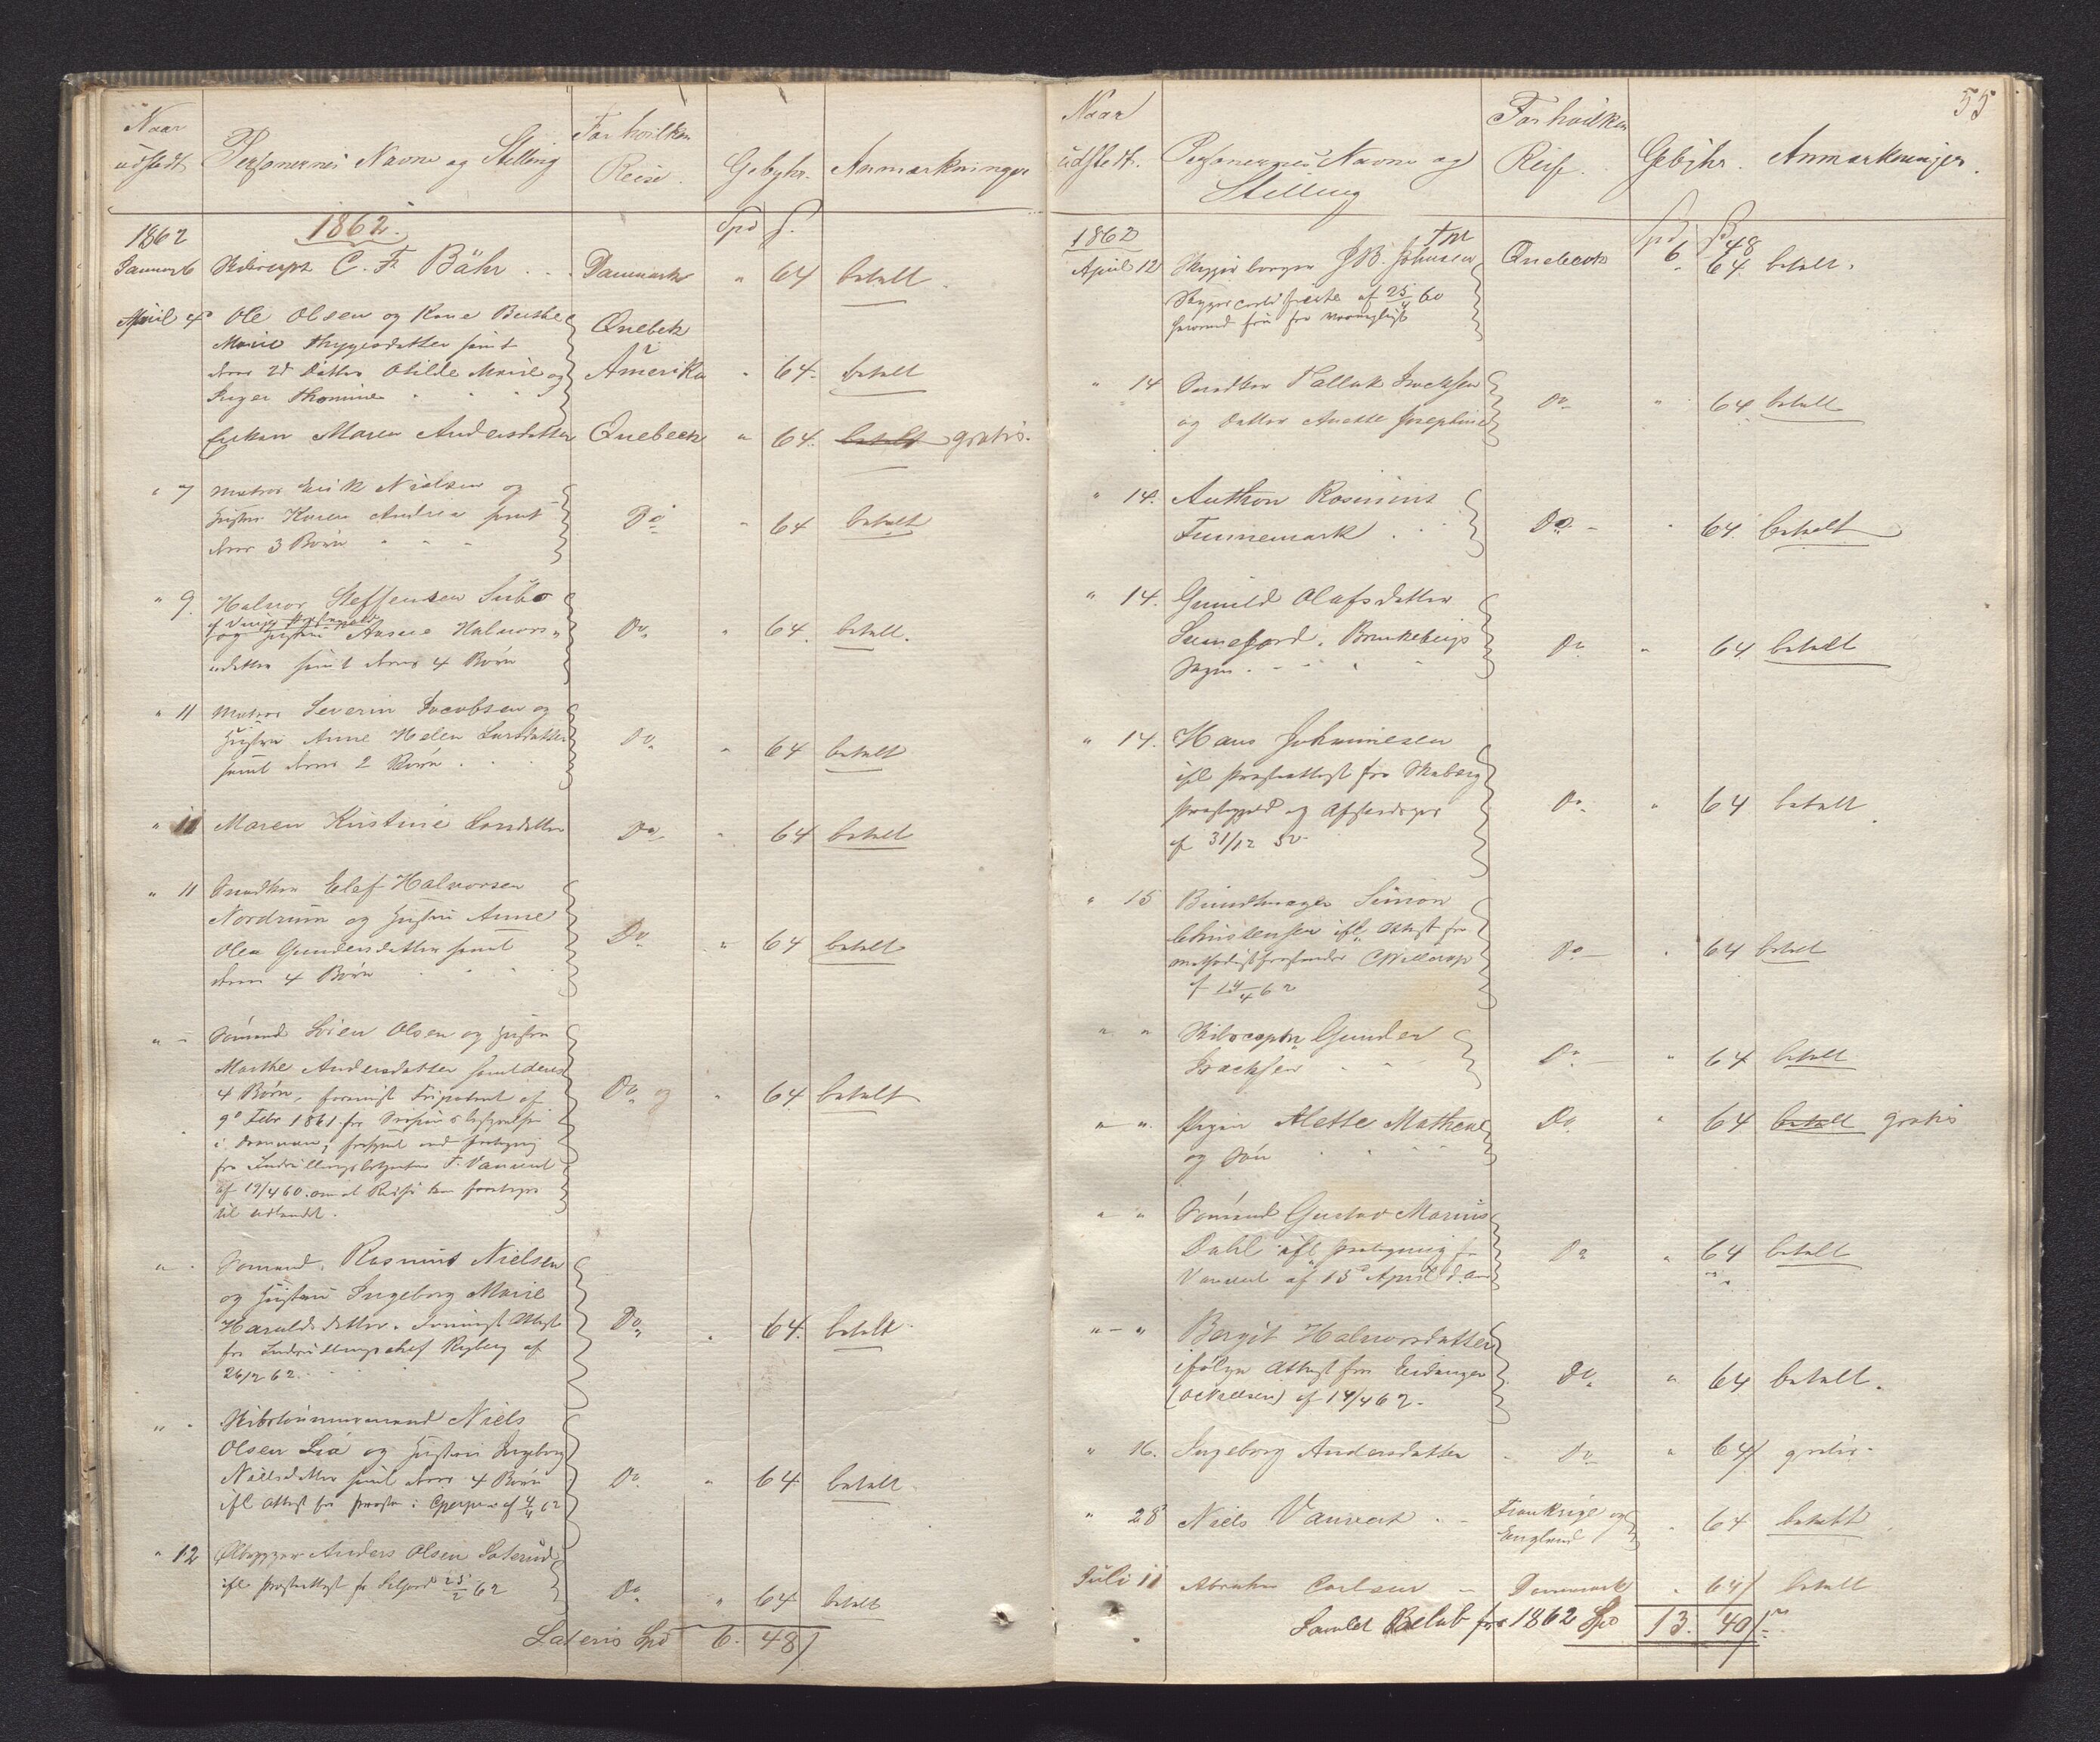 Naar
udstedt
Personernes Navne og Stilling
For hvilken
Reise.
Gebyhr.
Anmærkninger
1862
1862.
Spd ß.
Januar 6 Skibscapt C. Fr Bähr . . . Danmark " 64 betalt.
April 4 Ole Olsen og Kone Berthe Qvebek
Marie Thygesdatter samt i
deres 2d Døttre Otilde Marie og Amerika " 64 betalt
Inger Thomine " " "
Enken Maren Andersdatter Quebeck " 64. betalt gratis.
" 7 Matros Erik Nielsen og
Hustru Karen Andrea samt Do " 64 betalt
deres 3 Børn " " "
" 9. Halvor Steffensen Subo
og Hustru Aasne Halvors- Do " 64. betalt.
datter samt deres 4 Børn
" 11 Matros Severin Jacobsen og
Hustru Anne Helen Larsdatter Do " 64 betalt
samt deres 2 Børn . .
" 11 Maren Kristine Larsdatter Do " 64 betalt
" 11 Elef Halvorsen
Nordrum og Hustru Anne
Olea Gundersdatter samt Do " 64 betalt
deres 4 Børn
" - Sømand Sören Olsen og Hustru
Marthe Andersdatter samt deres
4 Børn, forevist Fripatent af Do og " 64 betalt
9de Febr 1861 fra
i Drammen,
fra T. Vauvert
af 19/4 60. om at Reise kan foretages
til Udlandet.
" . Sømand. Rasmus Nielsen
og Hustru Ingeborg Marie
Haraldsdatter. Forevist Attest Do " 64. betalt
fra Indrulleringschef Rygberg af
26/2 62.
" . Skibstømmermand Niels
Olsen Lia og Hustru Ingeborg
Nielsdatter samt deres 4 Børn Do " 64 betalt
ifl Attest fra Præsten i af 4/4 62
" 12 Anders Olsen Saterud
ifl Præsteattest fra Seljord 25/2 62 Do " 64 betalt
Lateris Spd 6. 48/
55
Naar
udstedt.
Personernes Navne og
Stilling
For hvilken
Reise.
Gebyhr.
Anmærkninger.
1862
Tnr Spd ß
6. 48
April 12 Skipperborger J B. Johnsen Quebeck 64 betalt.
af 25/4 60
" 14 Tallak Isachsen
og Datter Anette Josephine Do " 64 betalt
" 14. Anthon Rosinius
Finnemark . . Do - " 64. betalt
" 14. Gunild Olafsdatter
Sumefjord. Brunkebergs Do " 64 betalt
Sogn . - - " "
" 14. Hans Johannesen
ifl Præsteattest fra
Præstegjeld og Afskedspas Do " 64 betalt.
af 31/12 50
" 15 Bundtmager Simon
Christensen ifl. Attest fra
Methodistforstander CWillerup Do - " 64 betalt
af 14/4 62
" " Skibscaptn Gunder
Isachsen " - Do - " 64 betalt
" " Pigen Alette Mathene Do " 64 betalt gratis
og Søn
" " Sømand Gustav Marius
Dahl ifl. Do " 64 betalt
Vauvert af 15de April d. A.
" - " Bergit Halvorsdatter
ifølge Attest fra Eidanger Do " 64 betalt.
af 14/4 62.
" 16. Ingeborg Andersdatter - Do " 64/ gratis.
" 28 Niels Vauvert . - Frankrige og " 64 betalt
England
Juli 11 Abraham Carlsen - Danemark " 64/ betalt
Samlet Beløb for 1862 Spd 13. 40/